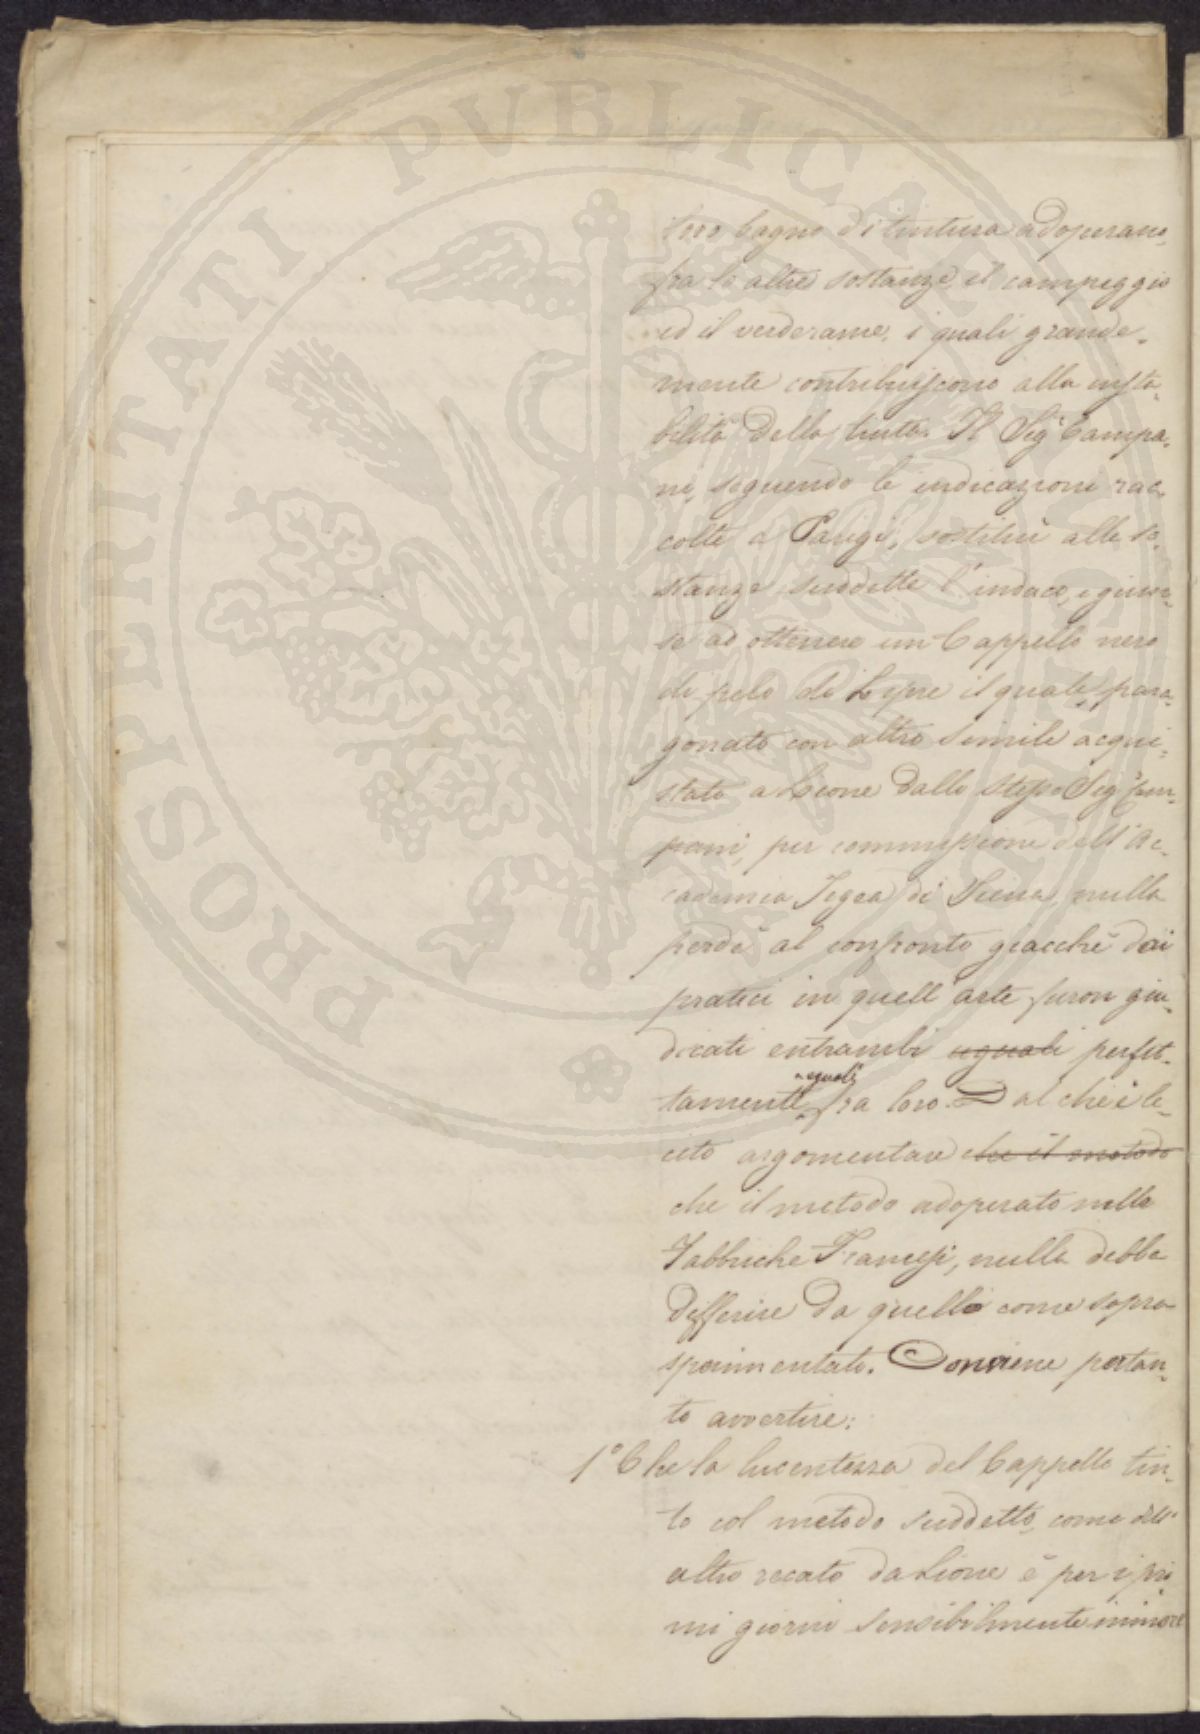 PROSPERITATI PUBLICAE
loro bagno di tintura adoperano
fra le altre sostanze il campeggio
ed il verderame, i quali grande-
mente contribuiscono alla insta-
bilità della tinta. Il Sigr Campa-
ni, seguendo le indicazioni rac-
colte a Parigi, sostituì alle so-
stanze suddette l'indaco, e giun-
se ad ottenere un Cappello nero
di pelo di Lepre il quale para-
gonato con altro simile acqui-
stato a Lione dallo stesso Sigr Cam-
pani, per commissione dell'Ac-
cademia Tegea di Siena, nulla
perdè al confronto giacchè dai
pratici in quell'arte furon giu-
dicati entrambi uguali perfet-
tamente uguali fra loro. Dal che è le-
cito argomentare che il metodo
che il metodo adoperato nelle
Fabbriche Francesi, nulla debba
differire da quello come sopra
sperimentato. Conviene pertan-
to avvertire:
1° Che la lucentezza del Cappello tin-
to col metodo suddetto, come dell'
altro recato da Lione è per i pri
mi giorni sensibilmente minore